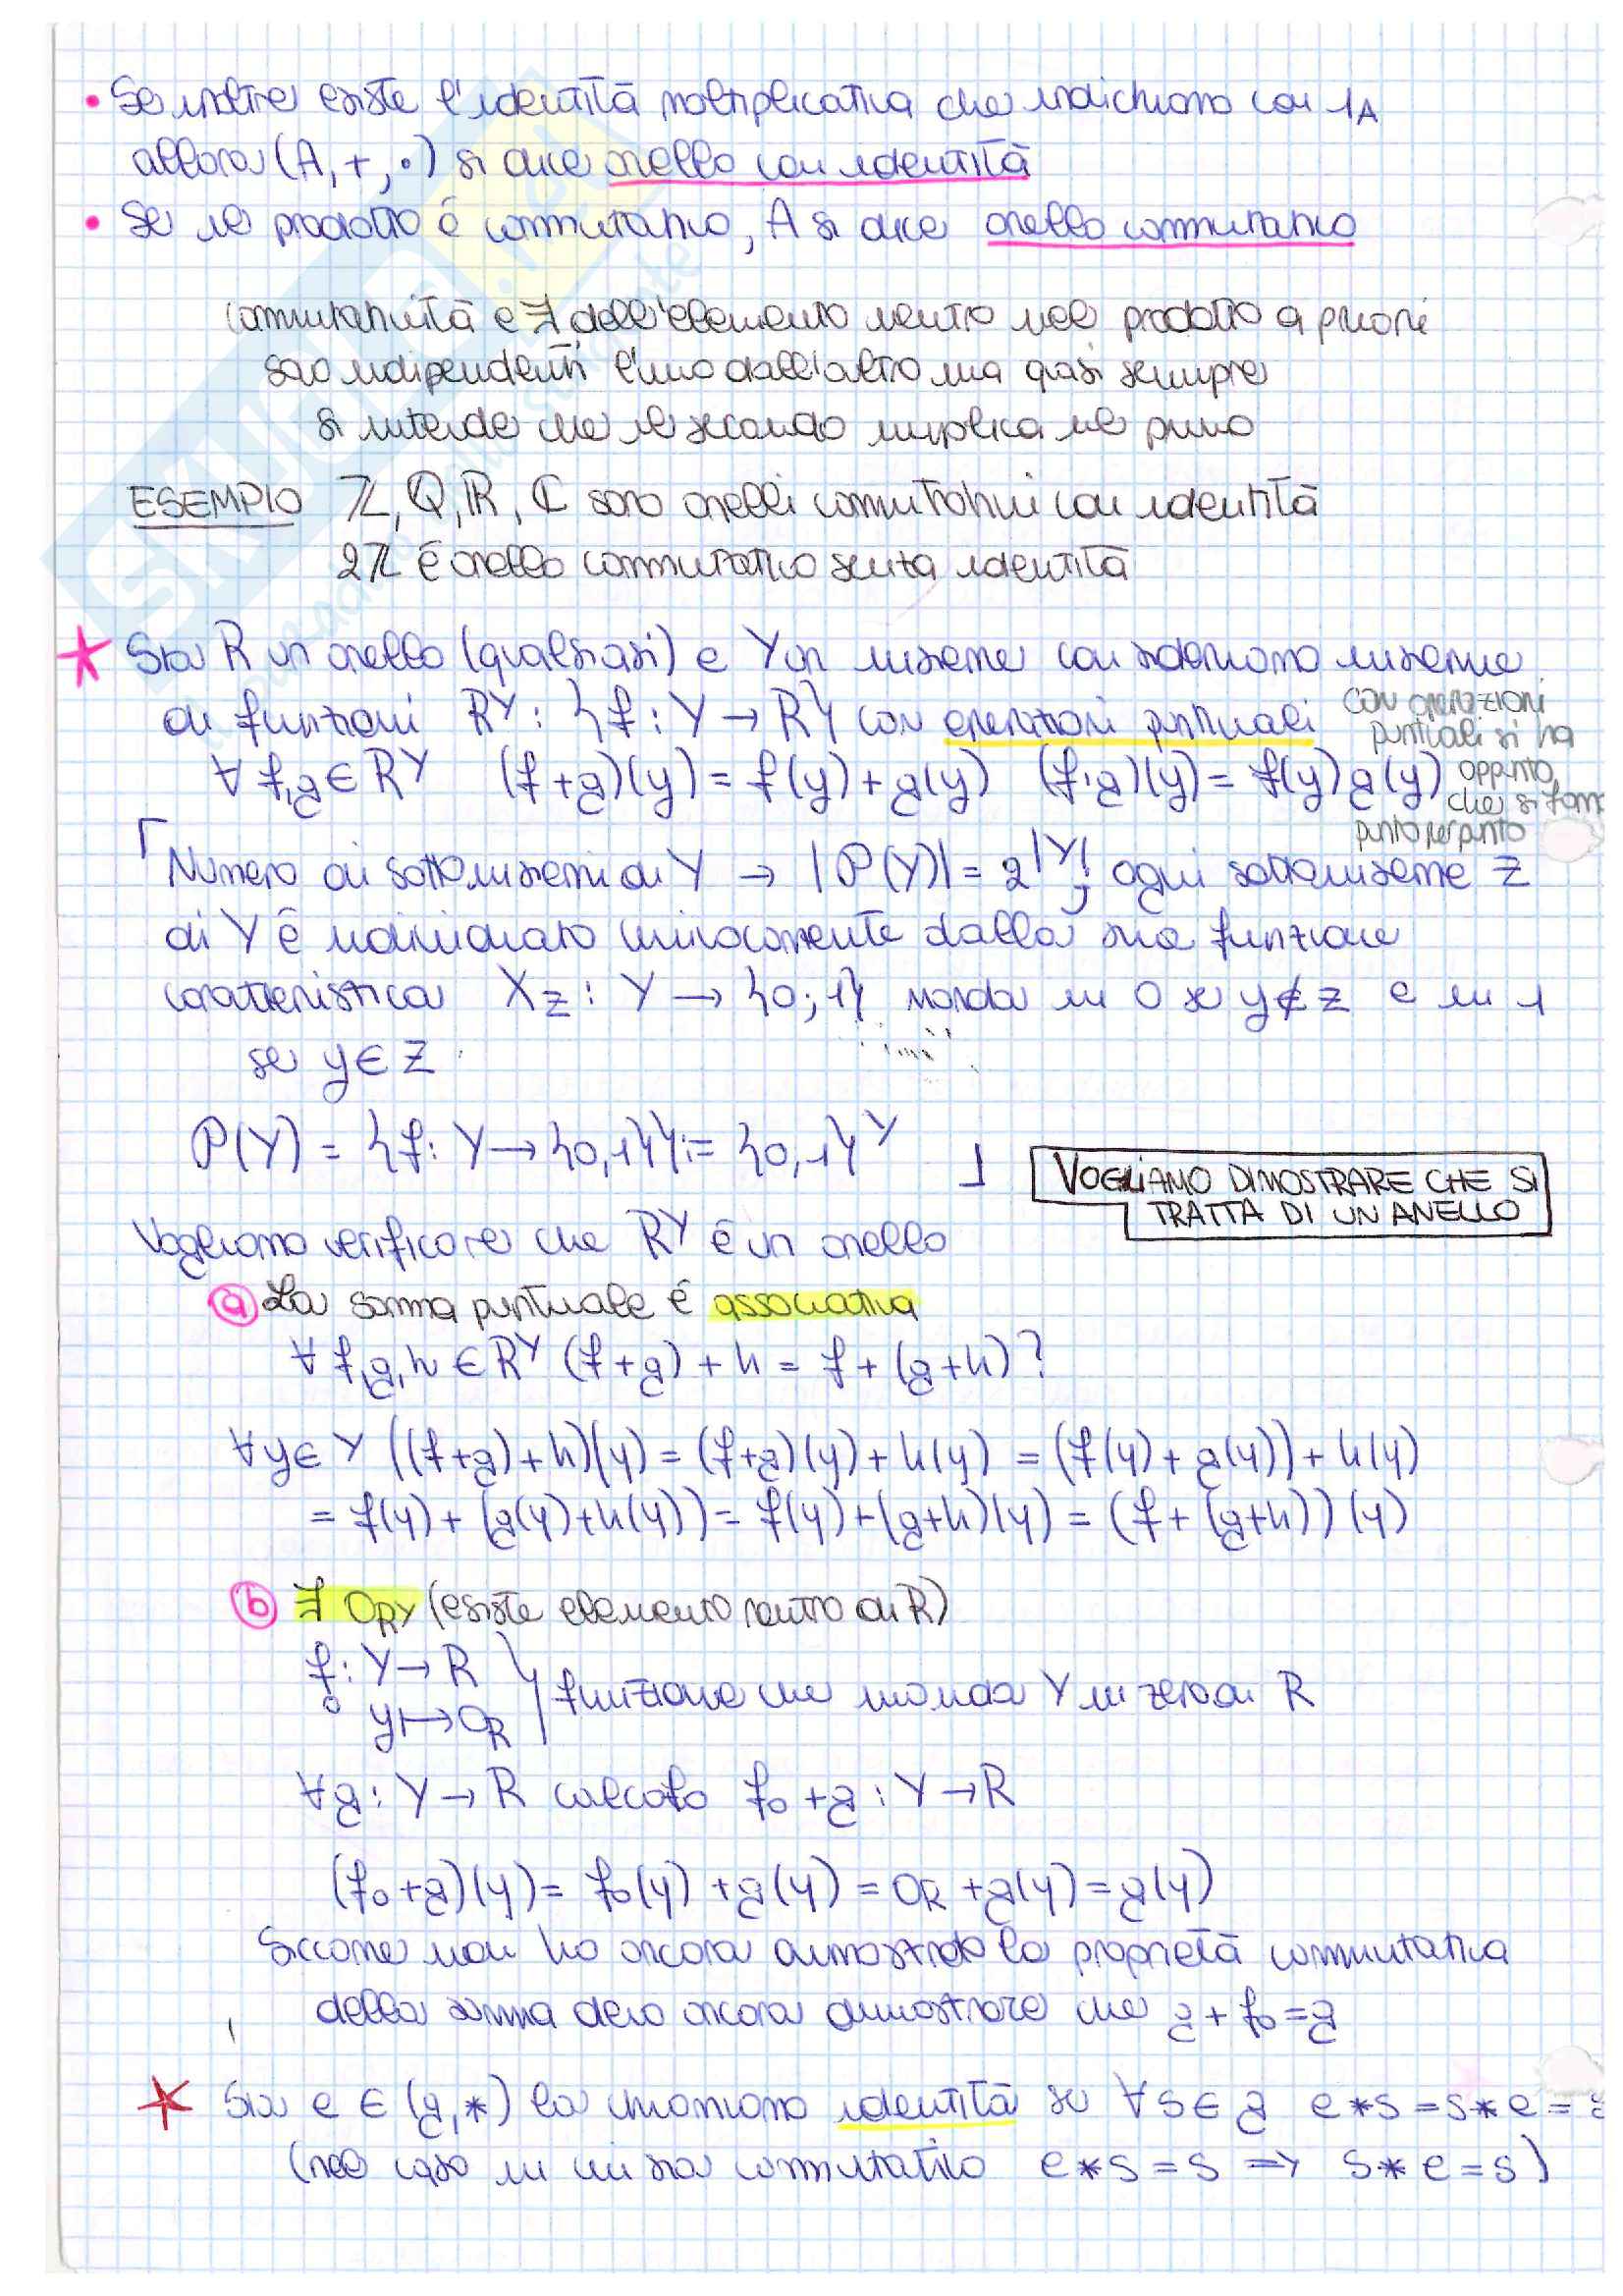 • Se inoltre esiste l'identità moltiplicativa che indichiamo con 1_A
allora (A, +, ·) si dice anello con identità
• Se il prodotto è commutativo, A si dice anello commutativo
commutatività e ∃ dell'elemento neutro nel prodotto a priori
sono indipendenti l'uno dall'altro ma quasi sempre
si intende che il secondo implica il primo
ESEMPIO ℤ, ℚ, ℝ, ℂ sono anelli commutativi con identità
2ℤ è anello commutativo senza identità
* Sia R un anello (qualsiasi) e Y un insieme consideriamo insieme
di funzioni R^Y : {f : Y → R} con operazioni puntuali
con operazioni
puntuali si ha
appunto
che si fanno
punto per punto
∀ f,g ∈ R^Y (f+g)(y) = f(y) + g(y) (f·g)(y) = f(y) g(y)
⌈ Numero di sottoinsiemi di Y → |P(Y)| = 2^|Y| ; ogni sottoinsieme Z
di Y è individuato univocamente dalla sua funzione
caratteristica X_Z : Y → {0;1} manda in 0 se y∉Z e in 1
se y∈Z
P(Y) = {f: Y → {0,1}} := {0,1}^Y ⌋
VOGLIAMO DIMOSTRARE CHE SI
TRATTA DI UN ANELLO
Vogliamo verificare che R^Y è un anello
ⓐ La somma puntuale è associativa
∀ f,g,h ∈ R^Y (f+g) + h = f + (g+h)?
∀y∈Y ((f+g)+h)(y) = (f+g)(y) + h(y) = (f(y) + g(y)) + h(y)
= f(y) + (g(y)+h(y)) = f(y) + (g+h)(y) = (f + (g+h))(y)
ⓑ ∃ 0_R^Y (esiste elemento neutro di R)
f₀ : Y → R
y ↦ 0_R
} funzione che manda Y in zero di R
∀g : Y → R calcolo f₀ + g : Y → R
(f₀ + g)(y) = f₀(y) + g(y) = 0_R + g(y) = g(y)
Siccome non ho ancora dimostrato la proprietà commutativa
della somma devo ancora dimostrare che g + f₀ = g
* Sia e ∈ (g, *) la chiamiamo identità se ∀s∈g e*s = s*e = s
(nel caso in cui sia commutativo e*s = s ⇒ s*e = s)